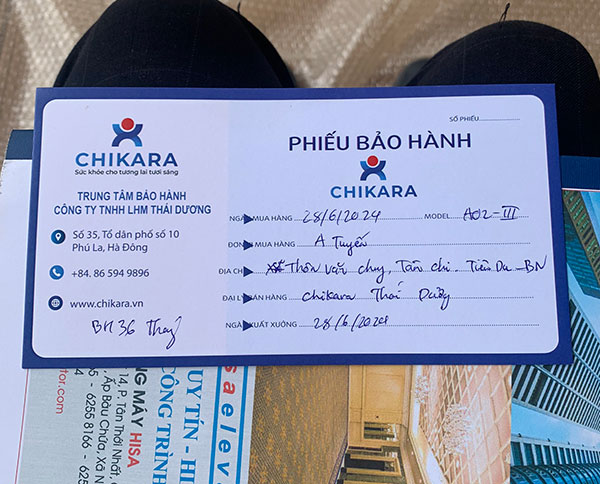 CHIKARA
Sức khỏe cho tương lai tươi sáng
TRUNG TÂM BẢO HÀNH
CÔNG TY TNHH LHM THÁI DƯƠNG
Số 35, Tổ dân phố số 10
Phú La, Hà Đông
+84. 86 594 9896
www.chikara.vn
BH 36 Tháng
SỐ PHIẾU
PHIẾU BẢO HÀNH
CHIKARA
NGÀY MUA HÀNG 28/6/2024 MODEL A02-III
ĐƠN MUA HÀNG A Tuyến
ĐỊA CHỈ Thôn văn chung, Tân chi. Tiên Du - BN
ĐẠI LÝ BÁN HÀNG chikara Thái Dương
NGÀY XUẤT XUỞNG 28/6/2024
saelev
UY TÍN - HI
CÔNG TRÌNH
NG MÁY HISA
14, P. Tân Thới Nhất, C
, Ấp Bàu Chứa, Xã N
6255 8166 - 6
tor.com